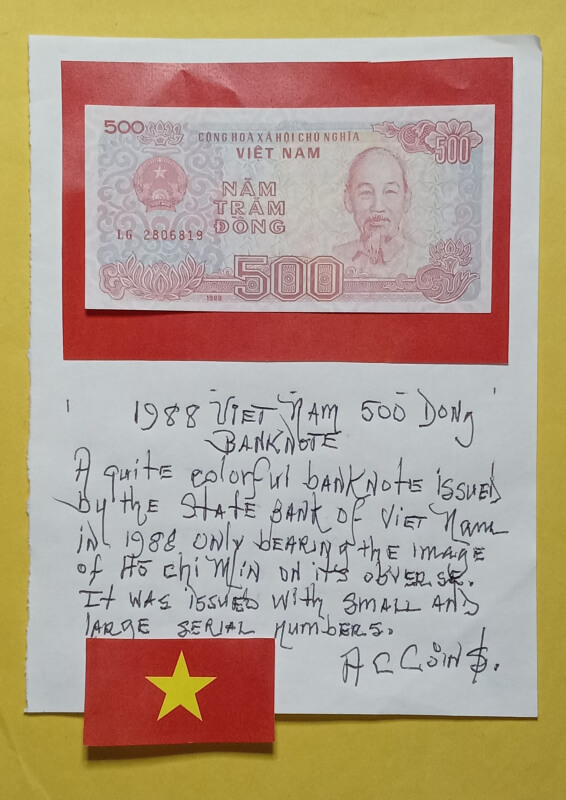 500
CỘNG HÒA XÃ HỘI CHỦ NGHĨA
VIỆT NAM
500
NĂM
TRĂM
ĐỒNG
LG 2806819
500
1988
1988 VIET NAM 500 DONG
BANKNOTE
A quite colorful banknote issued
by the STATE BANK of VIET NAM
in 1988 only bearing the image
of Ho chi Min on its obverse.
It was issued with small and
large serial numbers.
A C Coin $.